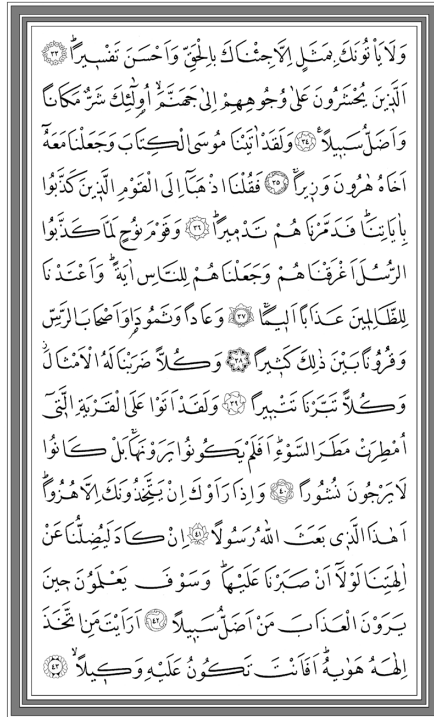 وَلَا يَأْتُونَكَ بِمَثَلٍ اِلَّا جِئْنَاكَ بِالْحَقِّ وَاَحْسَنَ تَفْسٖيراًؕ ﴿٣٣﴾
اَلَّذٖينَ يُحْشَرُونَ عَلٰى وُجُوهِهِمْ اِلٰى جَهَنَّمَۙ اُو۬لٰٓئِكَ شَرٌّ مَكَاناً
وَاَضَلُّ سَبٖيلاًࣖ ﴿٣٤﴾ وَلَقَدْ اٰتَيْنَا مُوسَى الْكِتَابَ وَجَعَلْنَا مَعَهُٓ
اَخَاهُ هٰرُونَ وَزٖيراًۚ ﴿٣٥﴾ فَقُلْنَا اذْهَبَٓا اِلَى الْقَوْمِ الَّذٖينَ كَذَّبُوا
بِاٰيَاتِنَاؕ فَدَمَّرْنَاهُمْ تَدْمٖيراًؕ ﴿٣٦﴾ وَقَوْمَ نُوحٍ لَمَّا كَذَّبُوا
الرُّسُلَ اَغْرَقْنَاهُمْ وَجَعَلْنَاهُمْ لِلنَّاسِ اٰيَةًؕ وَاَعْتَدْنَا
لِلظَّالِمٖينَ عَذَاباً اَلٖيماًۚ ﴿٣٧﴾ وَعَاداً وَثَمُودَا۬ وَاَصْحَابَ الرَّسِّ
وَقُرُوناً بَيْنَ ذٰلِكَ كَثٖيراً ﴿٣٨﴾ وَكُلاًّ ضَرَبْنَا لَهُ الْاَمْثَالَؗ
وَكُلاًّ تَبَّرْنَا تَتْبٖيراً ﴿٣٩﴾ وَلَقَدْ اَتَوْا عَلَى الْقَرْيَةِ الَّتٖٓي
اُمْطِرَتْ مَطَرَ السَّوْءِؕ اَفَلَمْ يَكُونُوا يَرَوْنَهَاۚ بَلْ كَانُوا
لَا يَرْجُونَ نُشُوراً ﴿٤٠﴾ وَاِذَا رَاَوْكَ اِنْ يَتَّخِذُونَكَ اِلَّا هُزُواًؕ
اَهٰذَا الَّذٖي بَعَثَ اللّٰهُ رَسُولاً ﴿٤١﴾ اِنْ كَادَ لَيُضِلُّنَا عَنْ
اٰلِهَتِنَا لَوْلَٓا اَنْ صَبَرْنَا عَلَيْهَاؕ وَسَوْفَ يَعْلَمُونَ حٖينَ
يَرَوْنَ الْعَذَابَ مَنْ اَضَلُّ سَبٖيلاً ﴿٤٢﴾ اَرَاَيْتَ مَنِ اتَّخَذَ
اِلٰهَهُ هَوٰيهُؕ اَفَاَنْتَ تَكُونُ عَلَيْهِ وَكٖيلاًۙ ﴿٤٣﴾